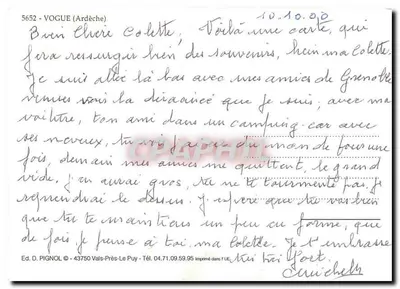 5652 - VOGUE (Ardèche)
10.10.00
Bien Chère Colette, Voilà une carte, qui
fera ressurgir bien des souvenirs, hein ma Colette.
Je suis allée là bas avec mes amies de Grenoble
venues voir la que je suis, avec ma
voiture, ton ami dans un camping-car avec
ses neveux, tu vois j'ai eu du monde pour une
fois, demain mes amies me quittent, le grand
vide, j'en aurai gros, tu ne te tourmente pas, je
reprendrai le dessus. J'espère que tu vas bien
que tu te maintiens un peu en forme, que
de fois je pense à toi, ma Colette. Je t'embrasse
très très fort.
Ed. D. PIGNOL © - 43750 Vals-Près-Le Puy - Tél. 04.71.09.59.95 Imprimé dans l'UE